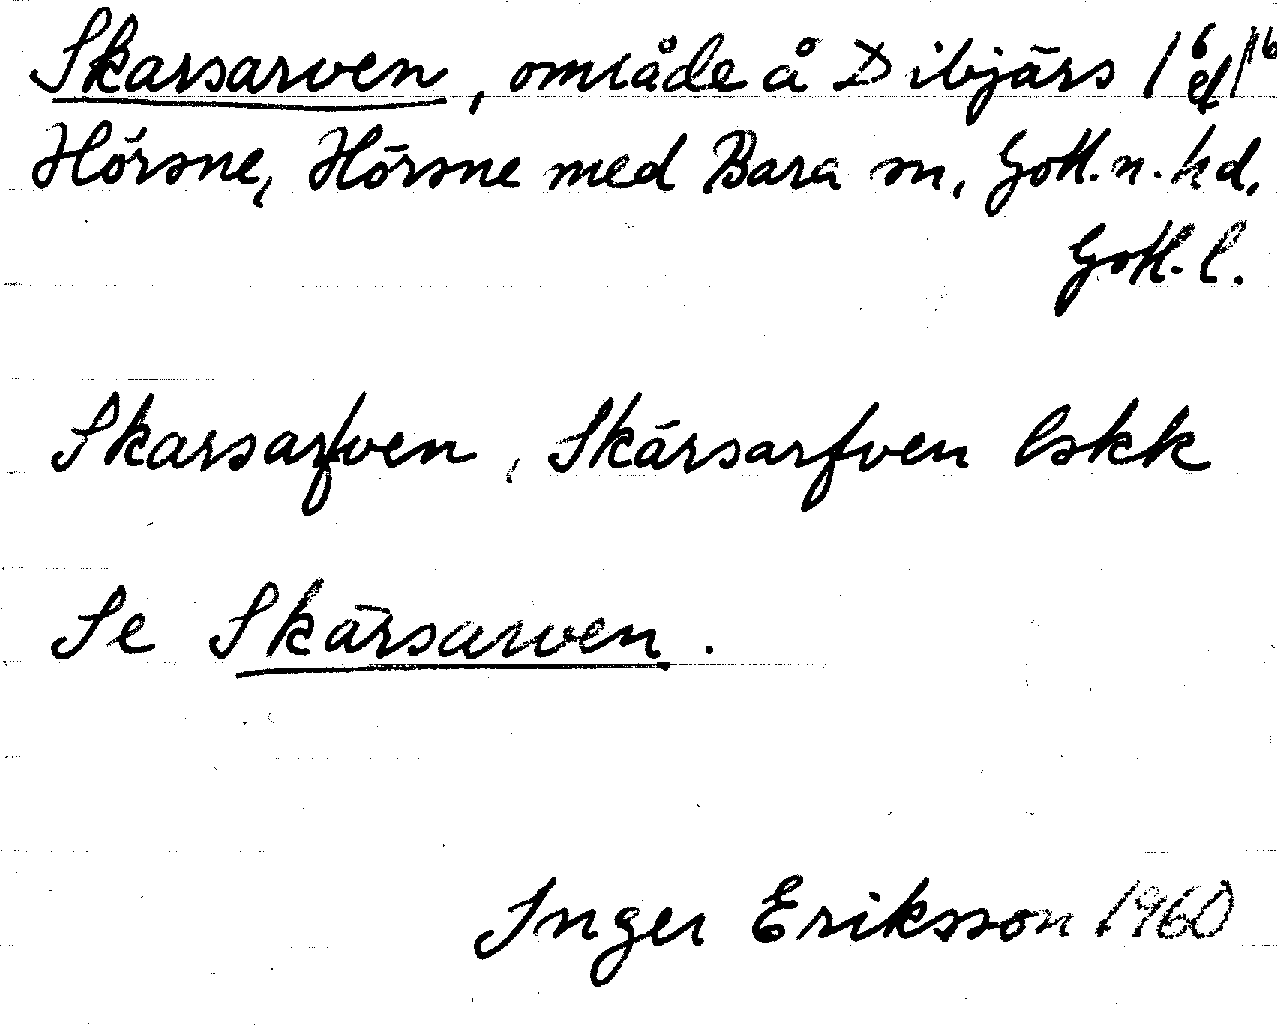 Skarsarven, område å Dibjärs 1⁶ ef 1ᵇ
Hörsne, Hörsne med Bara sn, Gotl. n. hd,
Gotl. l.
Skarsarfven, Skärsarfven lskk
Se Skärsarven.
Inger Eriksson 1960